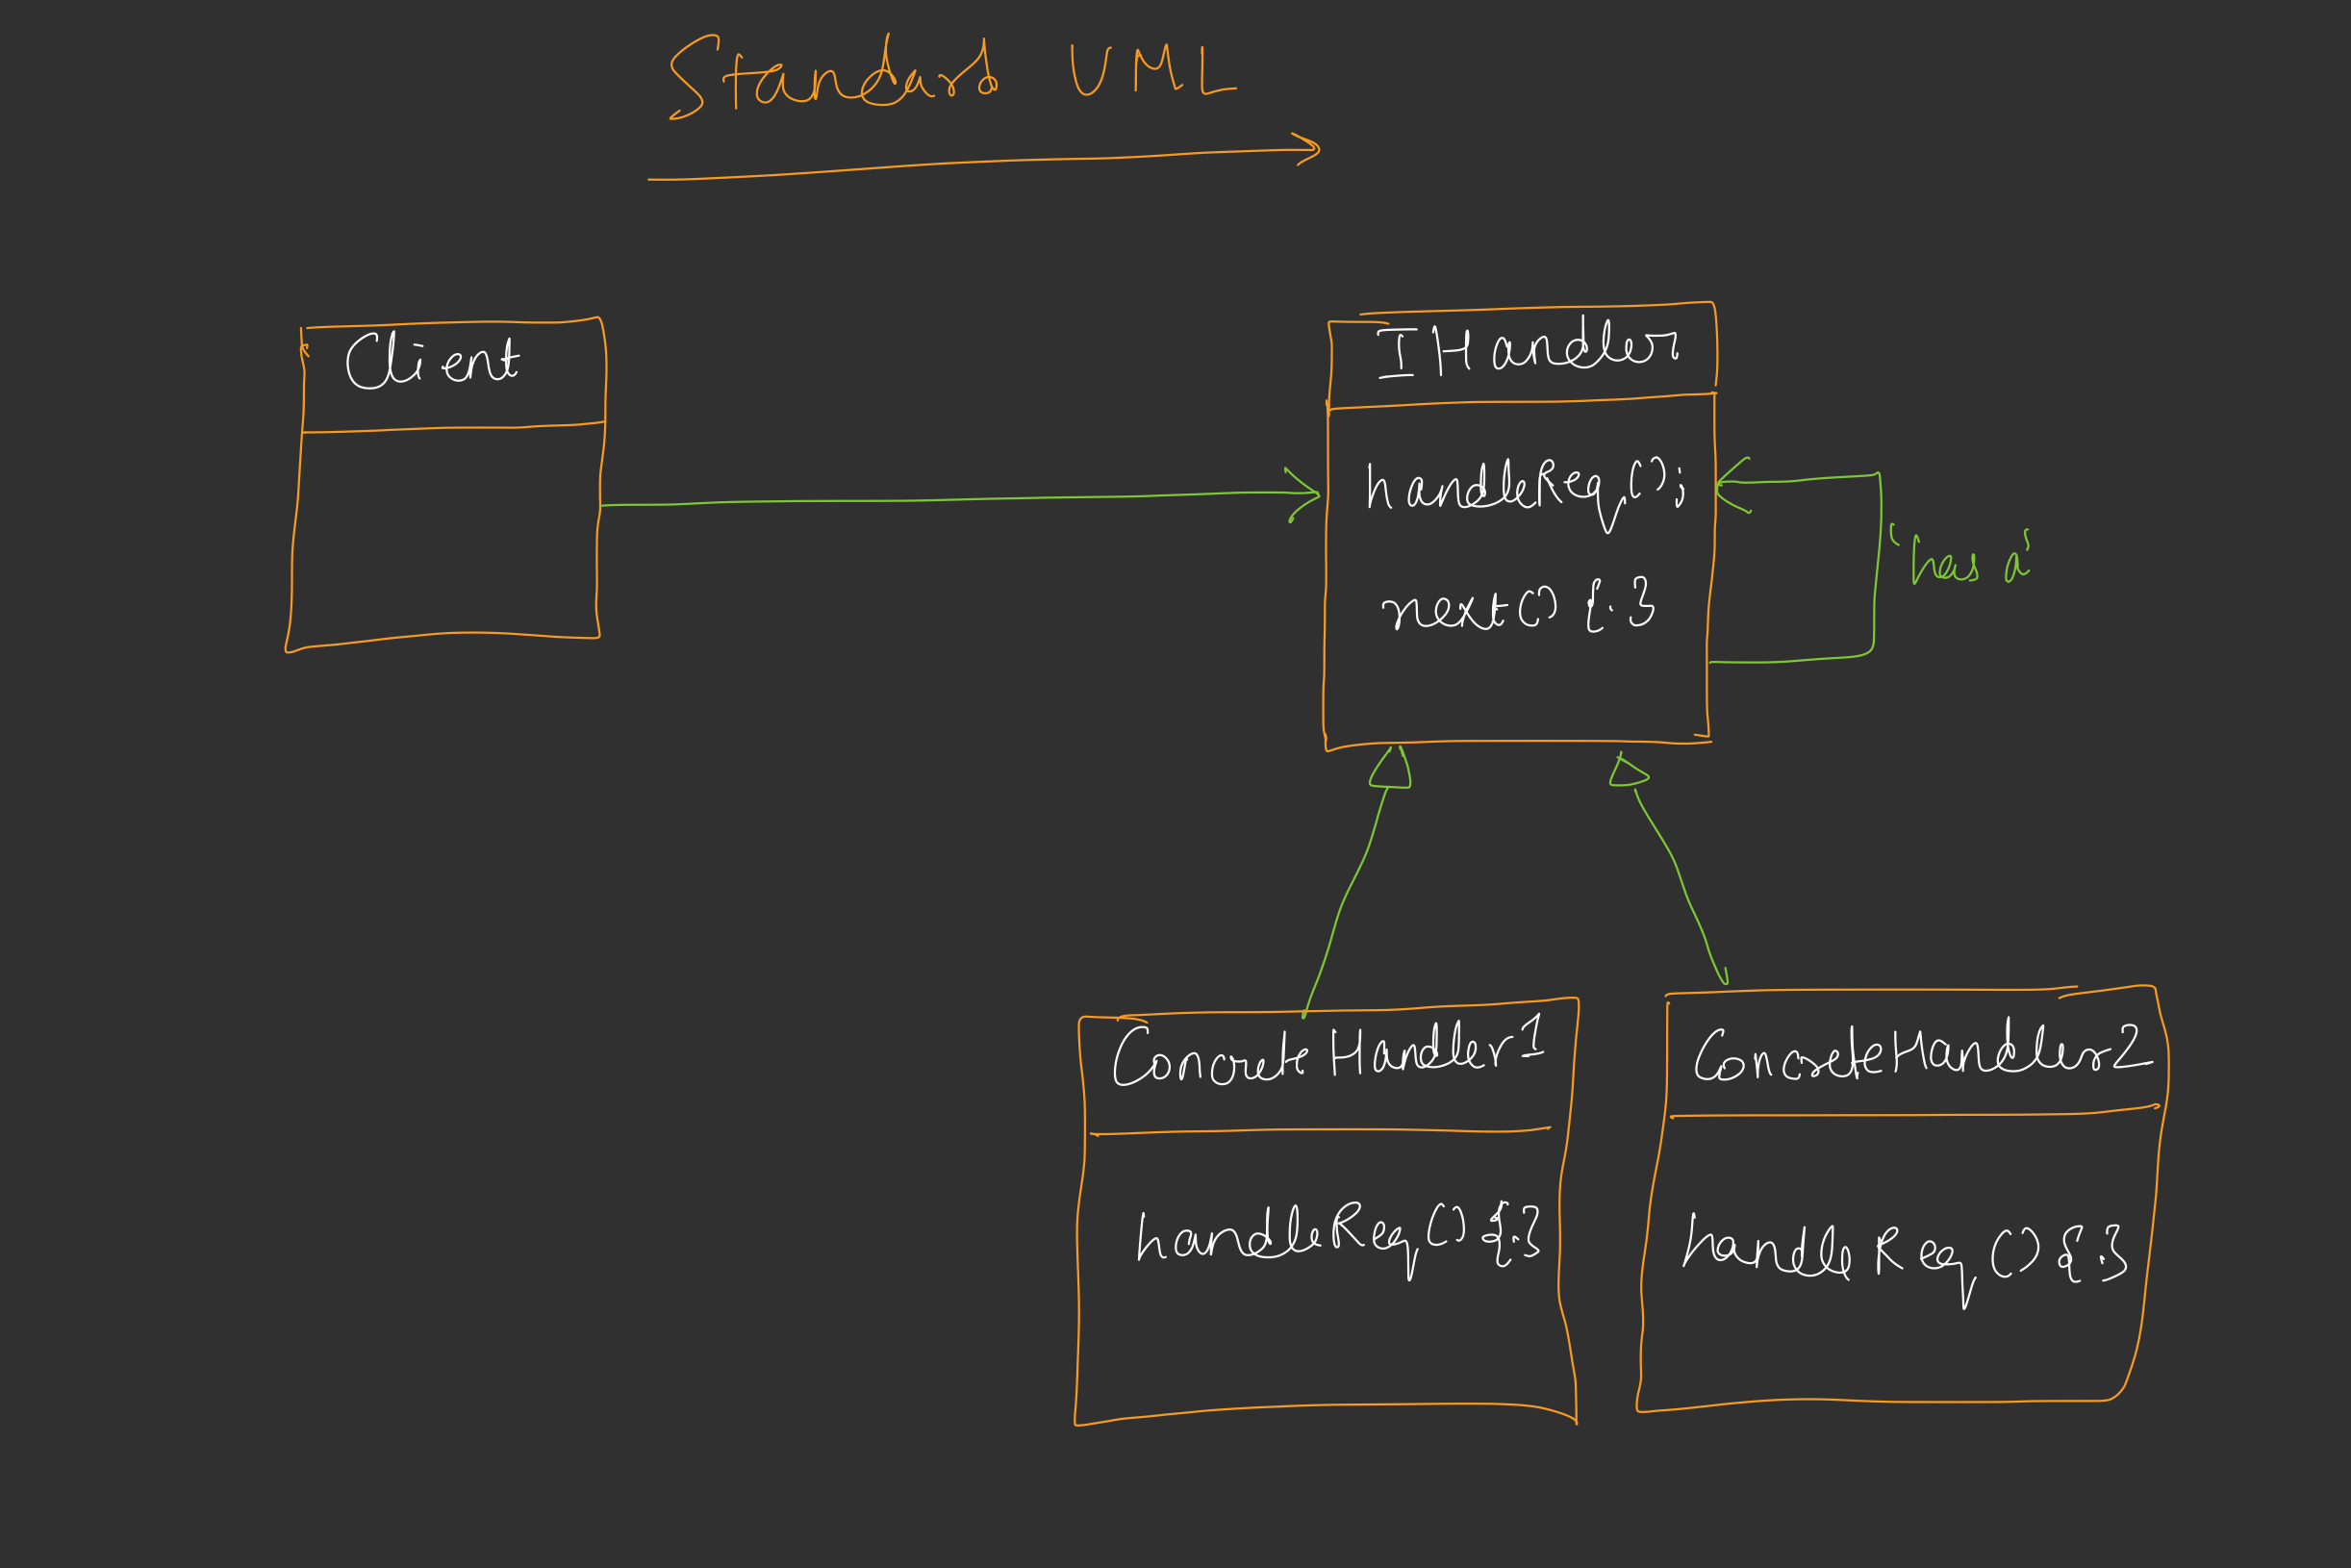 Standard UML
Client
IHandler
handleReq();
next() {.}
"has a"
ConcreteHandler1
handleReq() {.}
ConcreteHandler2
handleReq() {.}